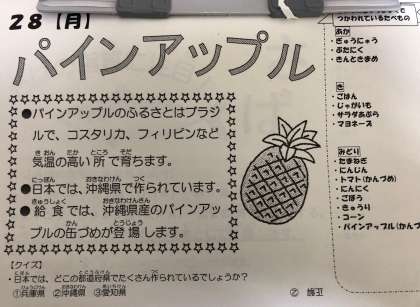 28【月】
パインアップル
●パインアップルのふるさとはブラジ
ルで、コスタリカ、フィリピンなど
気温の高い所で育ちます。
●日本では、沖縄県で作られています。
●給食では、沖縄県産のパインアッ
プルの缶づめが登場します。
【クイズ】
・日本では、どこの都道府県でたくさん作られているでしょうか？
①兵庫県 ②沖縄県 ③愛知県
つかわれているたべもの
あか
・ぎゅうにゅう
・ぶたにく
・きんときまめ
き
・ごはん
・じゃがいも
・サラダあぶら
・マヨネーズ
みどり
・たまねぎ
・にんじん
・トマト(かんづめ)
・にんにく
・ごぼう
・きゅうり
・コーン
・パインアップル(かんづめ)